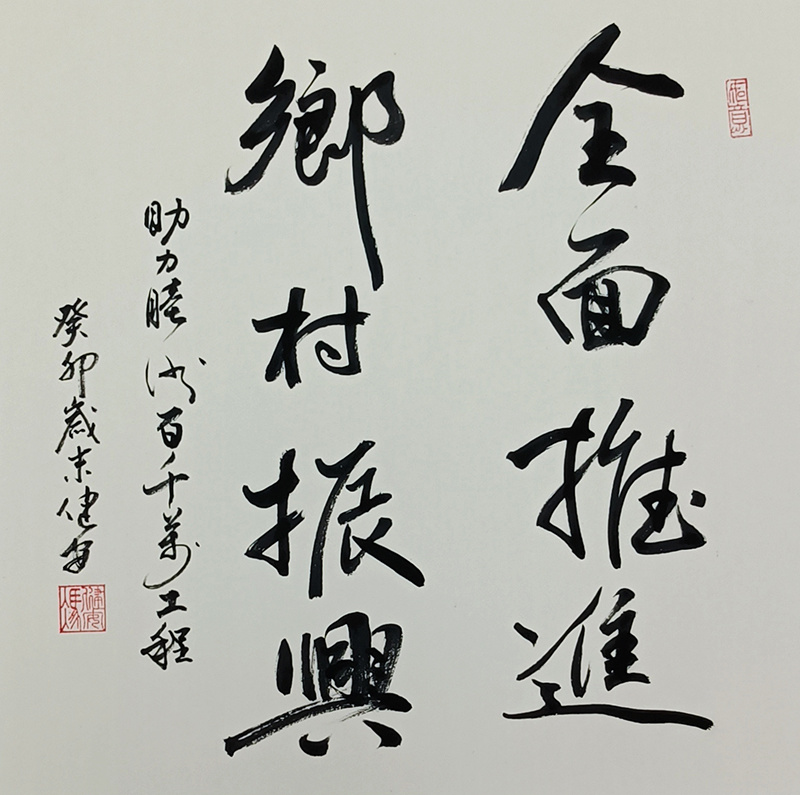 全面推進
鄉村振興
助力睦洲百千萬工程
癸卯歲末健安